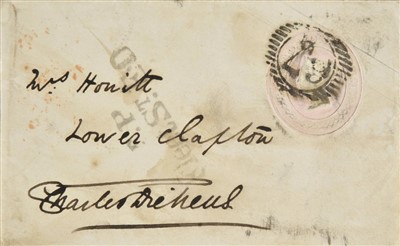 Mrs Howitt
Lower Clapton
Charles Dickens
PP